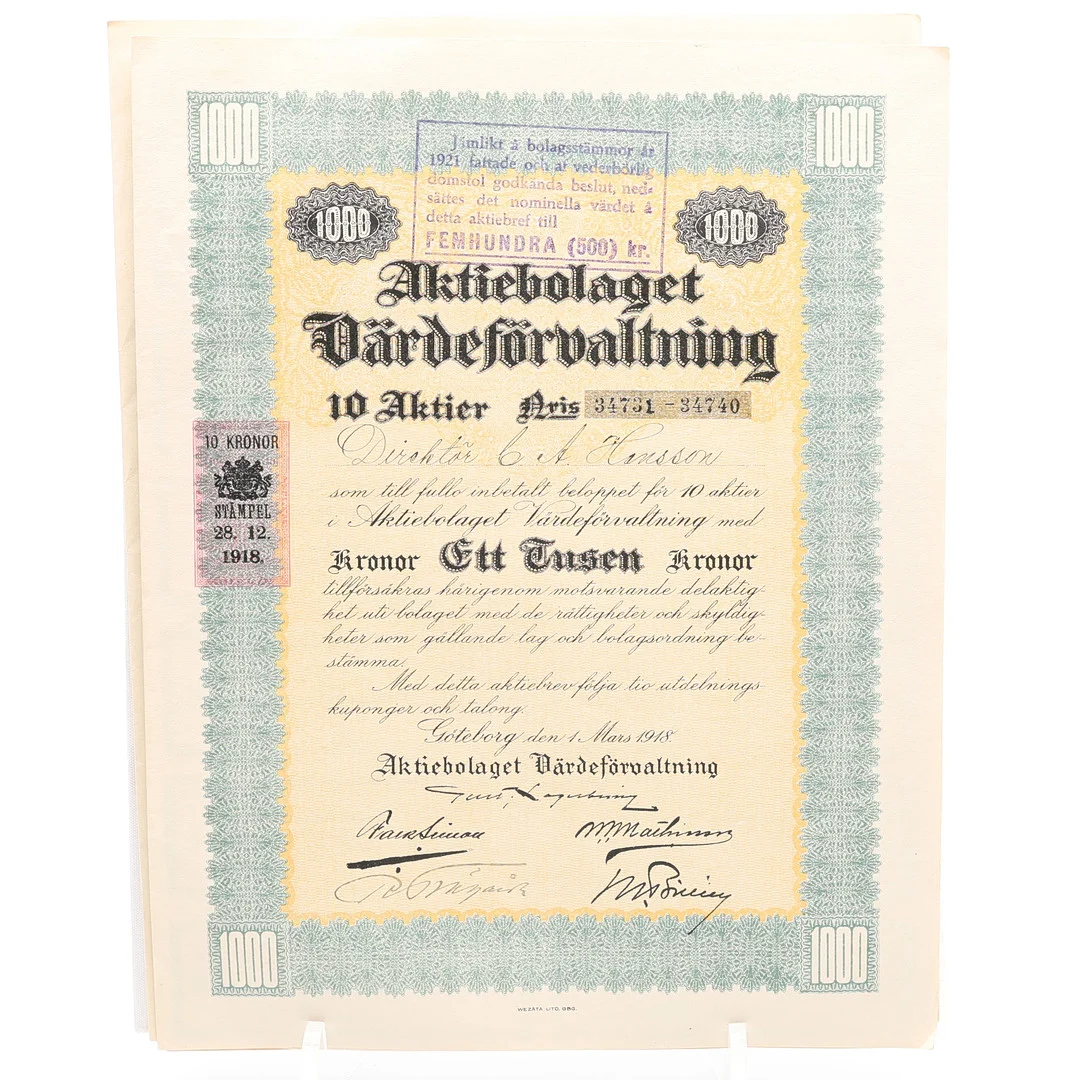 1000 1000
Jämlikt å bolagsstämmor år
1921 fattade och af vederbörlig
domstol godkända beslut, ned-
sättes det nominella värdet å
detta aktiebref till
FEMHUNDRA (500) kr.
1000 1000
Aktiebolaget
Värdeförvaltning
10 Aktier Nris 34731 - 34740
Direktör C A Hansson
10 KRONOR
STÄMPEL
28. 12.
1918.
som till fullo inbetalt beloppet för 10 aktier
i Aktiebolaget Värdeförvaltning med
Kronor Ett Tusen Kronor
tillförsäkras härigenom motsvarande delaktig-
het uti bolaget med de rättigheter och skyldig-
heter som gällande lag och bolagsordning be-
stämma.
Med detta aktiebrev följa tio utdelnings-
kuponger och talong.
Göteborg den 1 Mars 1918.
Aktiebolaget Värdeförvaltning
1000 1000
WEZÄTA LITO. GBG.